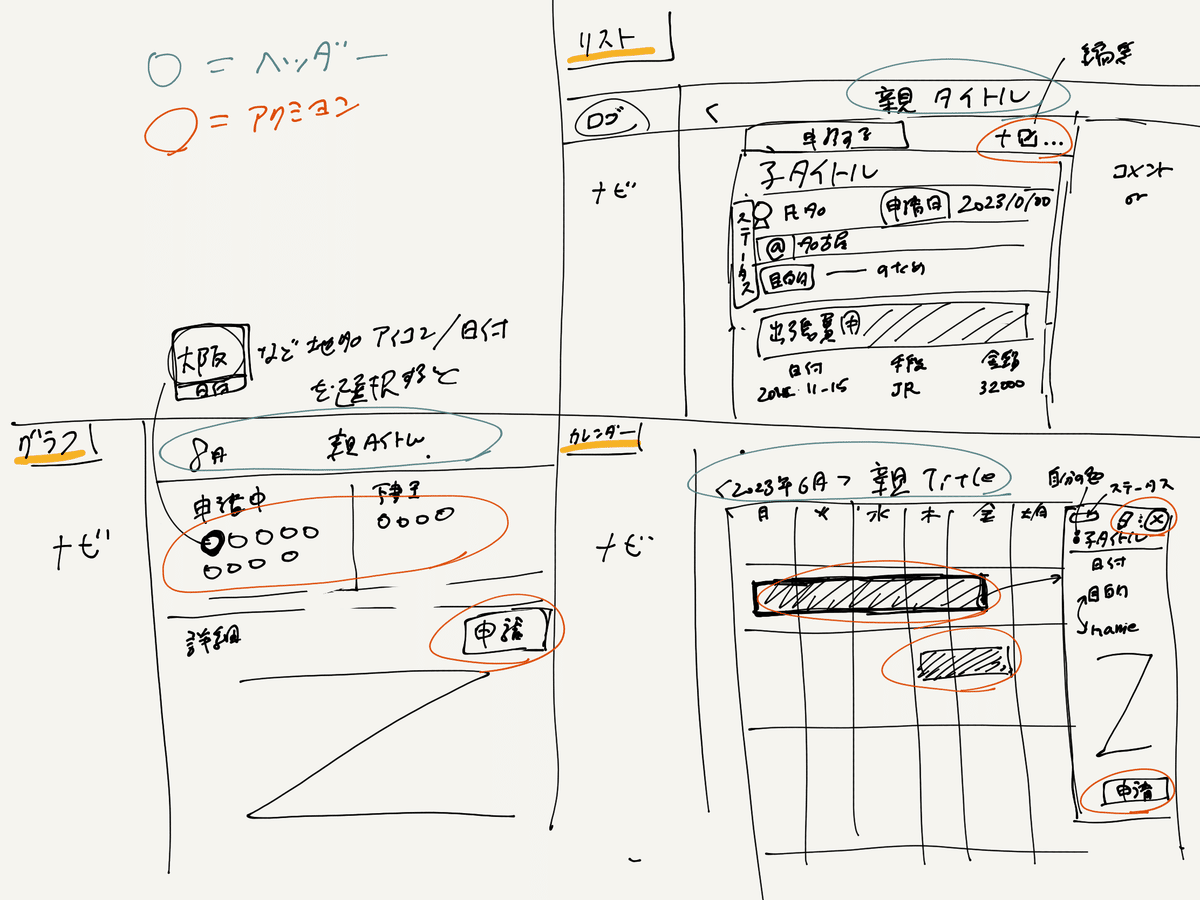 = ヘッダー
= アクション
リスト
編集
ロゴ
<
親タイトル
+ ...
ナビ
子タイトル
コメント
or
ステータス
氏名
申請日
2023/0/00
@ 名古屋
目的
のため
出張費用
日付
手段
金額
11-15
JR
32000
大阪
日付
など地名アイコン/日付
を選択すると
グラフ
8月
親タイトル
申請中
ナビ
詳細
申請
カレンダー
<2023年6月> 親Title
自分の色
ステータス
月
火
水
木
金
ナビ
子タイトル
日付
目的
name
申請